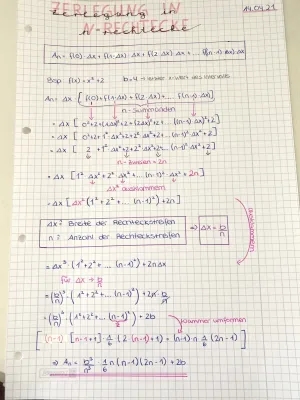 ZERLEGUNG IN
14.04.21
N-RECHTECKE
An = f(0)·Δx + f(1·Δx)·Δx + f(2·Δx)·Δx + ... f((n-1)·Δx)·Δx
Bsp: f(x) = x² + 2 b = 4 →
An = Δx [ f(0) + f(1·Δx) + f(2·Δx) + ... f((n-1)·Δx) ]
n-Summanden
= Δx [ 0² + 2 + (1Δx)² + 2 + (2Δx)² + 2 + ... ((n-1)·Δx)² + 2 ]
= Δx [ 0² + 2 + 1²·Δx² + 2 + 2²·Δx² + 2 + ... (n-1)²·Δx² + 2 ]
= Δx [ 2 + 1²·Δx² + 2 + 2²·Δx² + 2 + ... (n-1)²·Δx² + 2 ]
n-Zweien = 2n
= Δx [ 1²·Δx² + 2²·Δx² + ... (n-1)²·Δx² + 2n ]
Δx² ausklammern
= Δx [ Δx² (1² + 2² + ... (n-1)²) + 2n ]
Δx: Breite der Rechteckstreifen
n: Anzahl der Rechteckstreifen
⇒ Δx = b/n
= Δx³ (1² + 2² + ... (n-1)²) + 2nΔx
für Δx = b/n
= (b/n)³ · (1² + 2² + ... (n-1)²) + 2n · b/n
= (b/n)³ · (1² + 2² + ... (n-1)²) + 2b
Klammer umformen
[ (n-1) [n-1+1] · 1/6 (2·(n-1)+1) = (n-1)·n·1/6 (2n-1) ]
⇒ An = b³/n³ · 1/6 n(n-1)(2n-1) + 2b